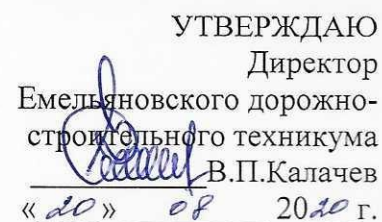 УТВЕРЖДАЮ
Директор
Емельяновского дорожно-
строительного техникума
В.П.Калачев
« 20 » 08 2020 г.